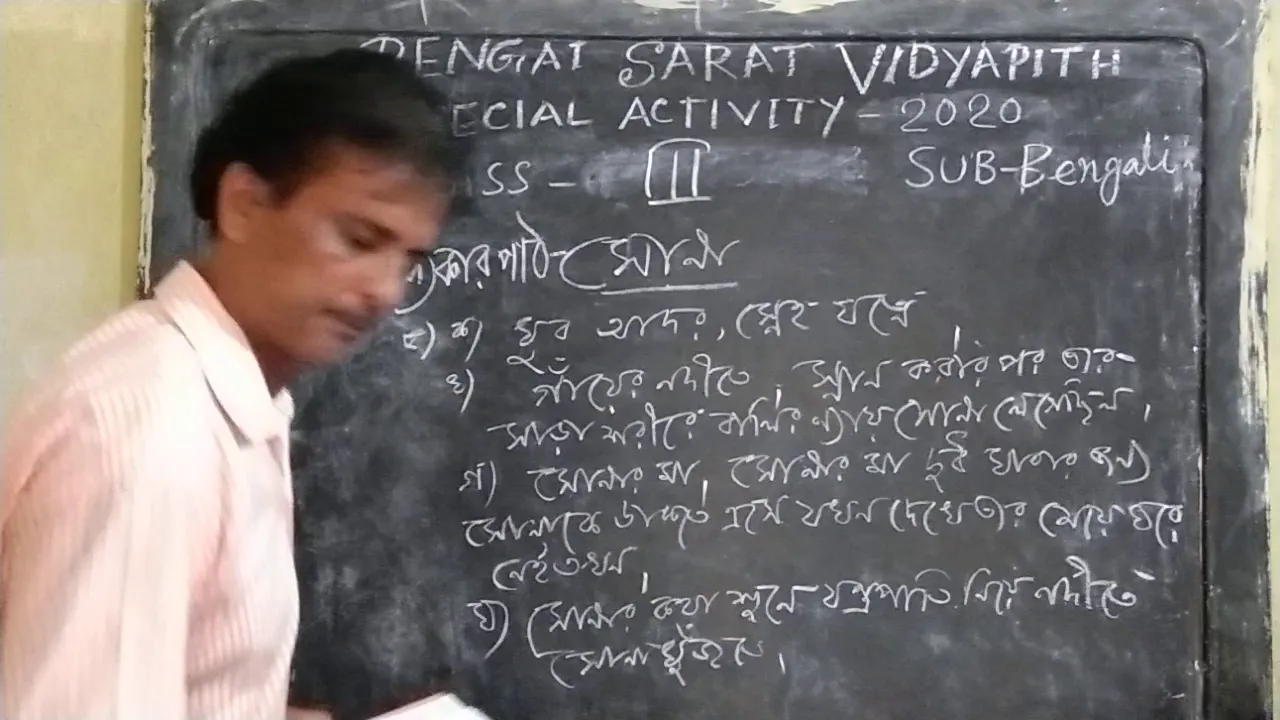 BENGAI SARAT VIDYAPITH
ECIAL ACTIVITY - 2020
SS - III SUB-Bengali
পাঠ- সোনা
ক) খুব আদর, স্নেহ যত্নে
খ) গাঁয়ের নদীতে, স্নান করার পর তার
সারা শরীরে বালির ন্যায় সোনা লেগেছিল,
গ) সোনার মা, সোনার মা দুধ খাবার জন্য
সোনাকে ডাকতে এসে যখন দেখে তার মেয়ে ঘরে
নেই তখন,
ঘ) সোনার কথা শুনে যন্ত্রপাতি নিয়ে নদীতে
সোনা খুঁজতে,